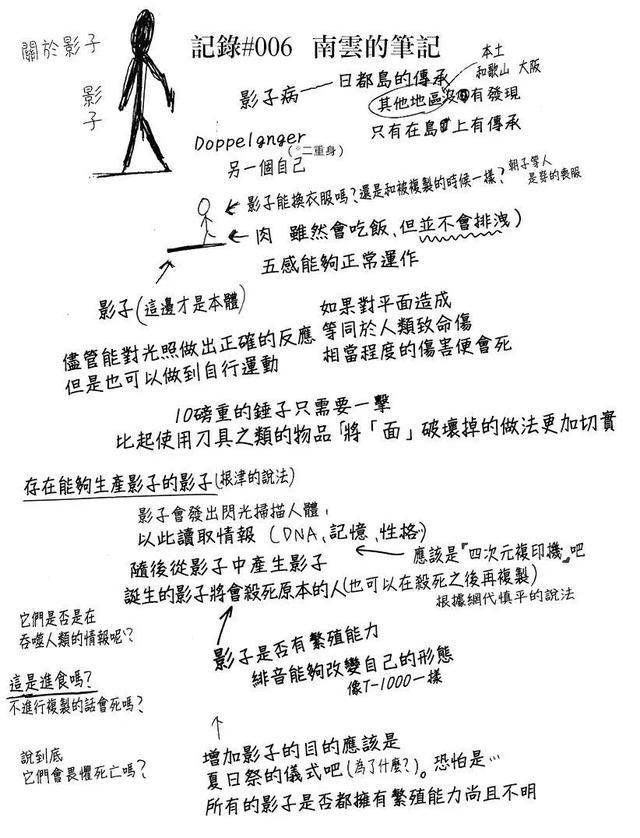 記錄#006 南雲的筆記
關於影子
影子
影子病——日都島的傳承
本土
和歌山 大阪
其他地區沒有發現
只有在島上有傳承
Doppelgnger
(※二重身)
另一個自己
影子能換衣服嗎?還是和被複製的時候一樣?
朝子等人
是穿的喪服
肉 雖然會吃飯、但並不會排洩)
五感能夠正常運作
影子(這邊才是本體)
儘管能對光照做出正確的反應
但是也可以做到自行運動
如果對平面造成
等同於人類致命傷
相當程度的傷害便會死
10磅重的錘子只需要一擊
比起使用刀具之類的物品「將「面」破壞掉的做法更加切實
存在能夠生產影子的影子(根津的說法)
影子會發出閃光掃描人體,
以此讀取情報(DNA、記憶、性格)
隨後從影子中產生影子
應該是『四次元複印機』吧
誕生的影子將會殺死原本的人(也可以在殺死之後再複製)
根據網代慎平的說法
它們是否是在
吞噬人類的情報呢?
影子是否有繁殖能力
緋音能夠改變自己的形態
像T-1000一樣
這是進食嗎?
不進行複製的話會死嗎?
說到底
它們會畏懼死亡嗎?
增加影子的目的應該是
夏日祭的儀式吧(為了什麼?)。恐怕是…
所有的影子是否都擁有繁殖能力尚且不明